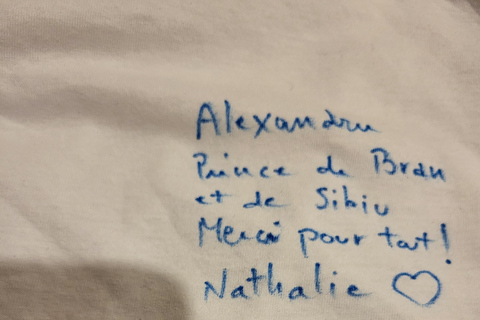 Alexandru
Prince de Bran
et de Sibiu
Merci pour tout!
Nathalie ♡